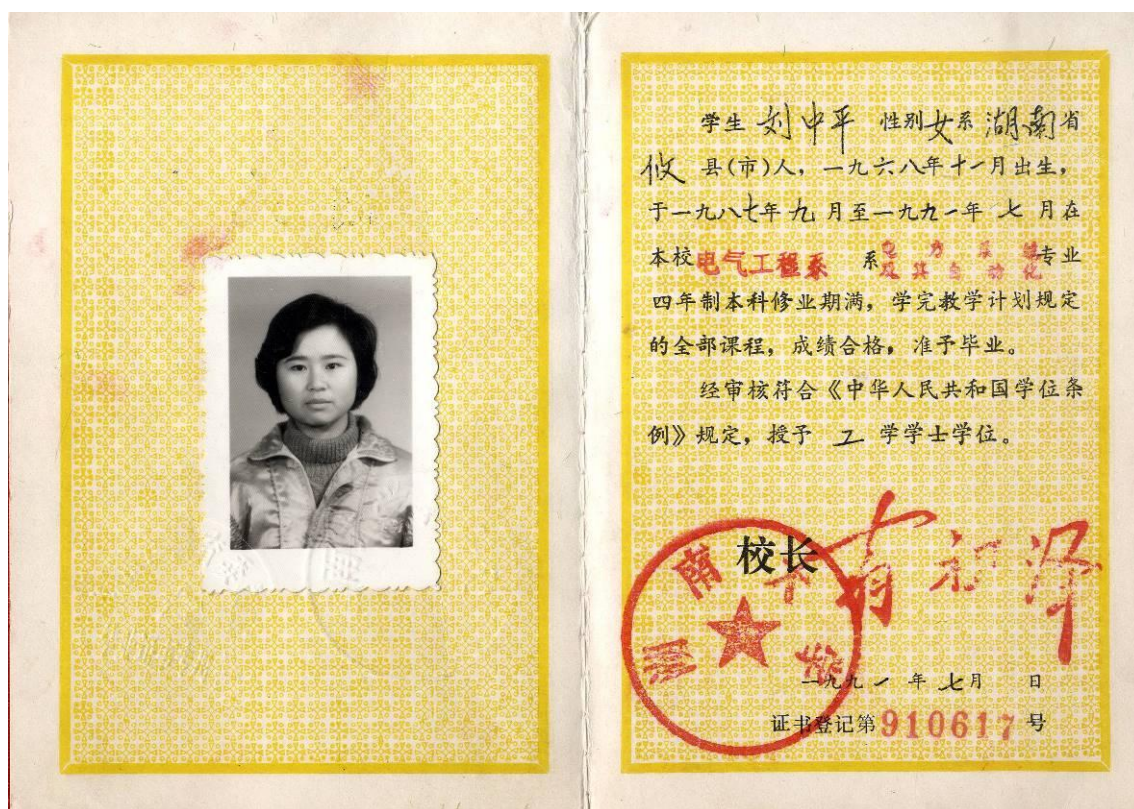 学生 刘中平 性别女系湖南省
攸 县(市)人，一九六八年十一月出生，
于一九八七年九月至一九九一年七月在
本校电气工程系 系电力系统及其自动化专业
四年制本科修业期满，学完教学计划规定
的全部课程，成绩合格，准予毕业。
经审核符合《中华人民共和国学位条
例》规定，授予 工 学学士学位。
湖南大学
校长
一九九一年七月 日
证书登记第910617号